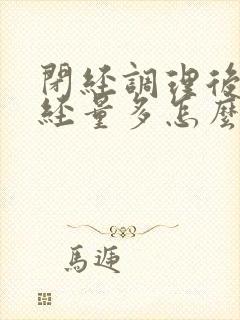 閉經調理後
經量多怎麼
馬逓